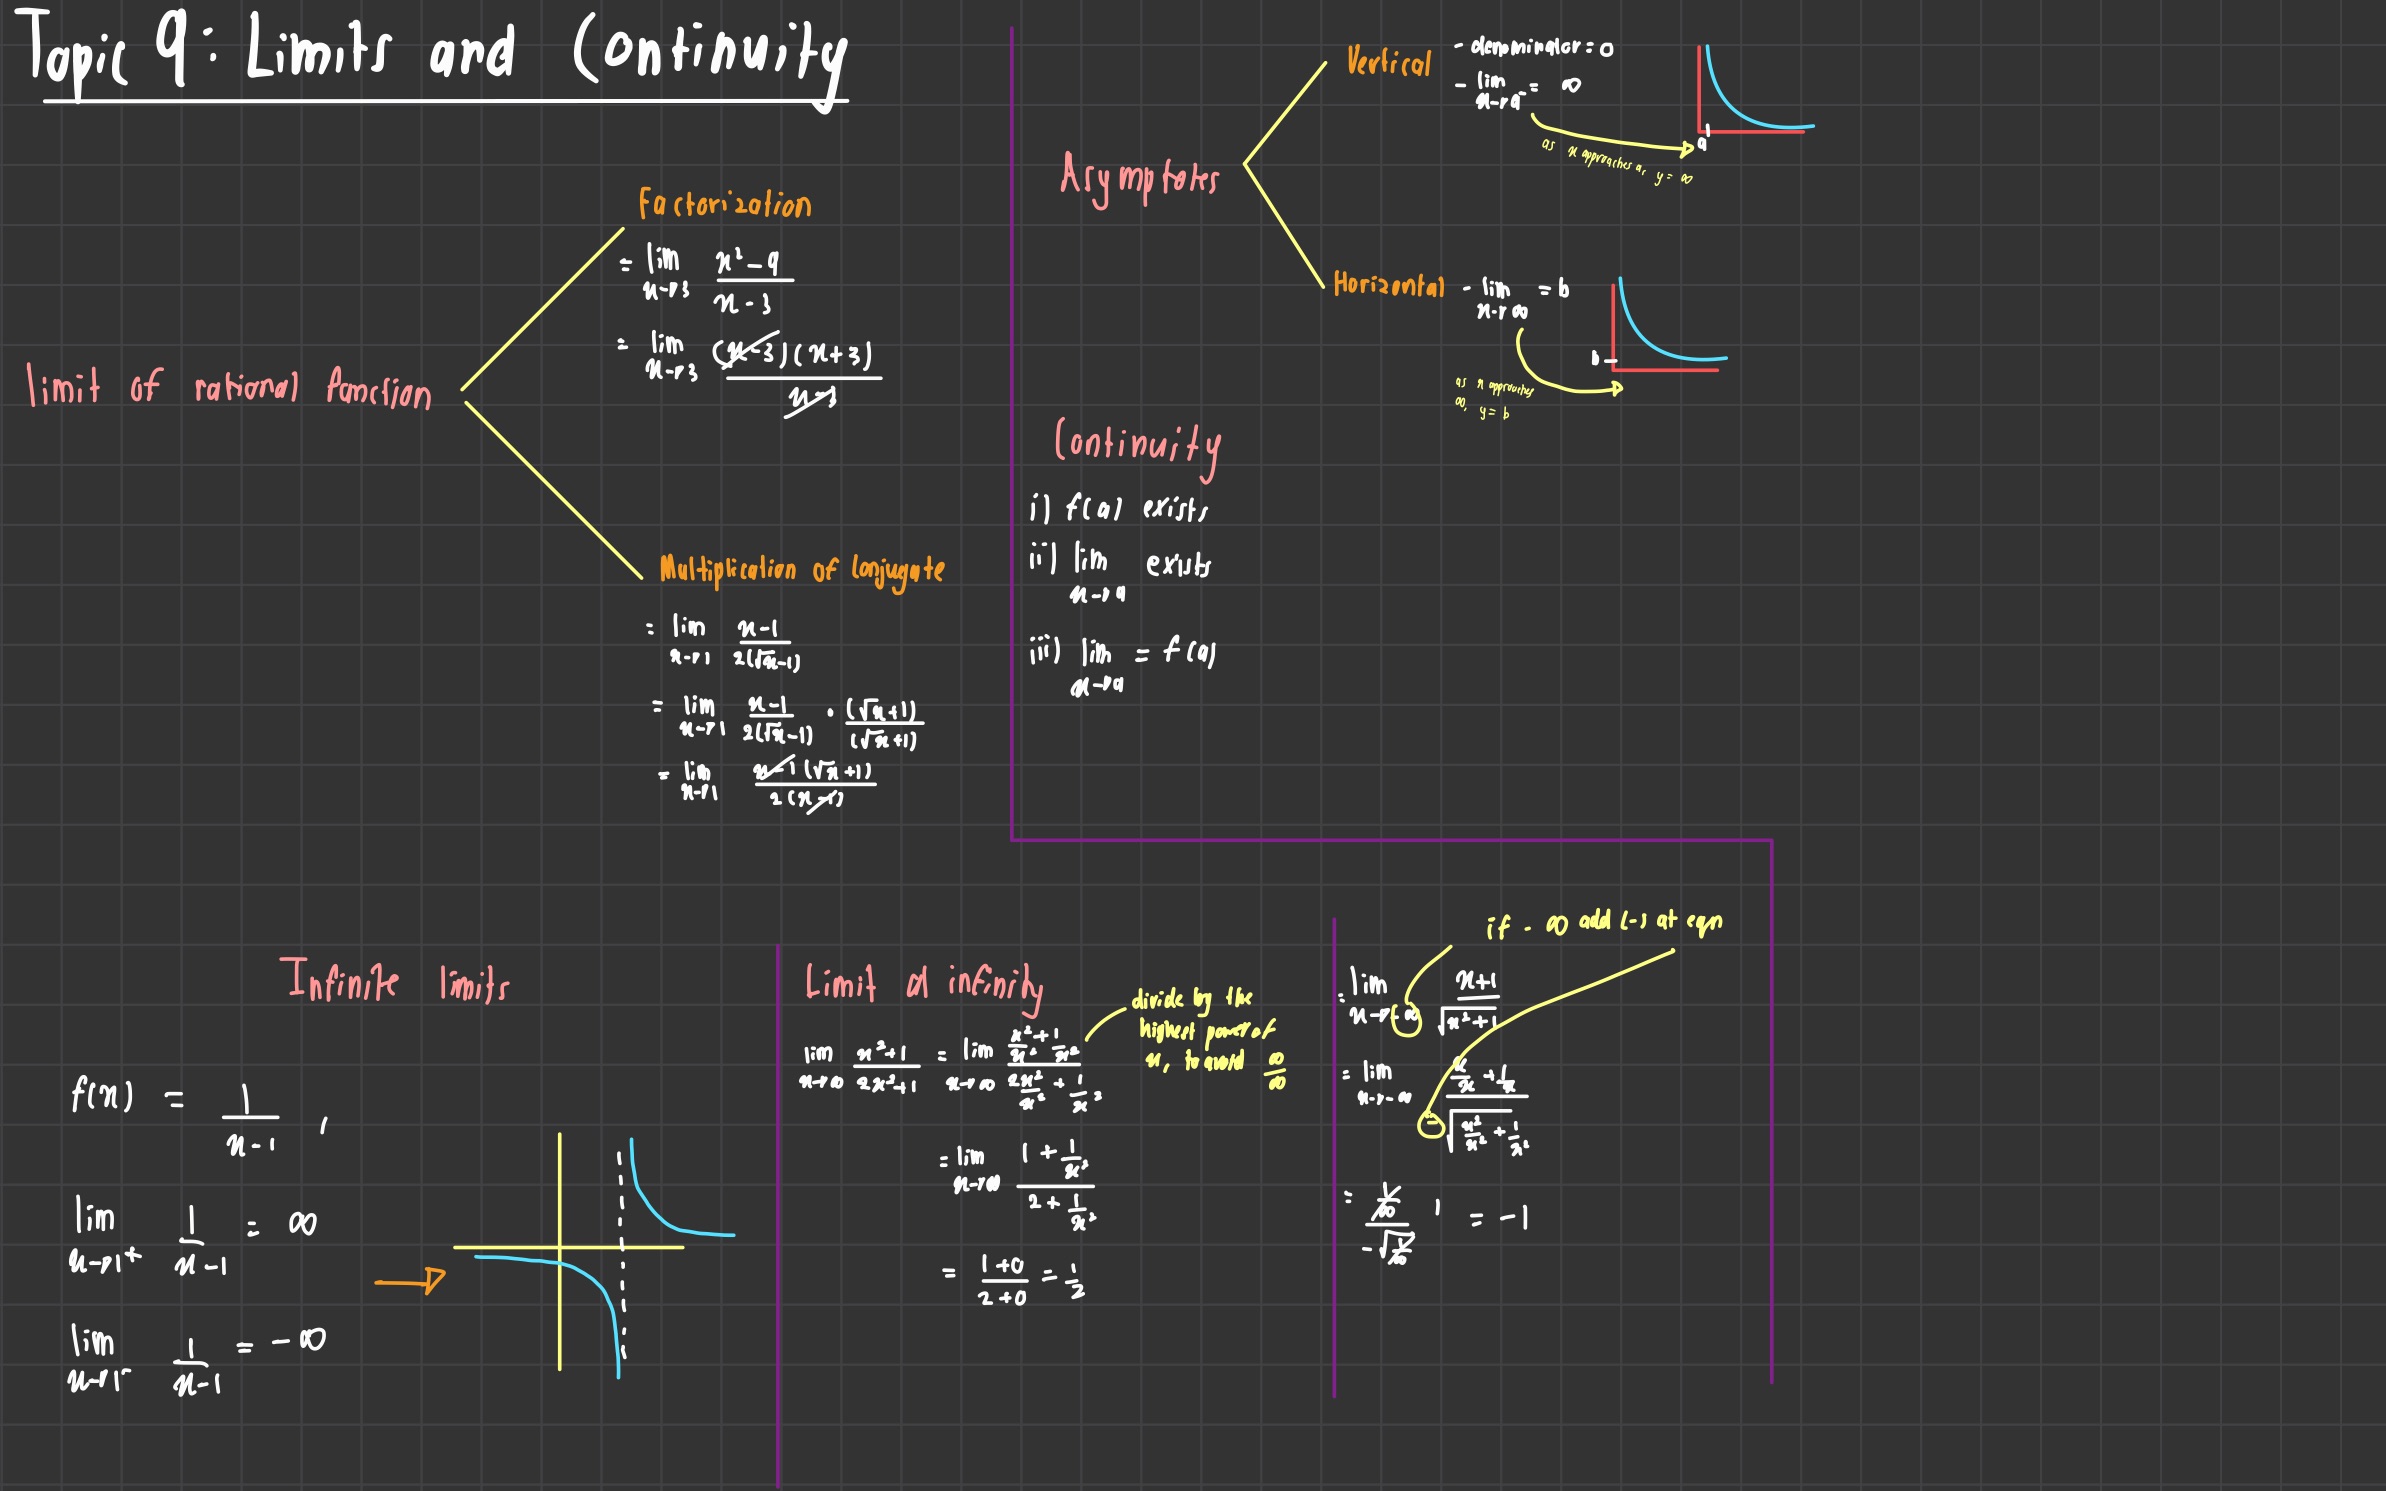 Topic 9: Limits and Continuity
limit of rational function
Factorization
= lim x→3 (x² - 9)/(x - 3)
= lim x→3 (x-3)(x+3)/(x-3)
Multiplication of Conjugate
= lim x→1 (x-1)/(2(√x-1))
= lim x→1 (x-1)/(2(√x-1)) · (√x+1)/(√x+1)
= lim x→1 x-1(√x+1)/(2(x-1))
Asymptotes
Vertical
- denominator = 0
- lim x→a⁻ = ∞
as x approaches a, y = ∞
a
Horizontal
- lim x→∞ = b
b
as x approaches
∞, y = b
Continuity
i) f(a) exists
ii) lim x→a exists
iii) lim x→a = f(a)
Infinite limits
f(x) = 1/(x-1) ,
lim x→1⁺ 1/(x-1) = ∞
lim x→1⁻ 1/(x-1) = -∞
Limit at infinity
divide by the
highest power of
x, to avoid ∞/∞
lim x→∞ (x²+1)/(2x²+1) = lim x→∞ (x²/x² + 1/x²)/(2x²/x² + 1/x²)
= lim x→∞ (1 + 1/x²)/(2 + 1/x²)
= (1+0)/(2+0) = 1/2
if -∞ add (-) at eqn
= lim x→-∞ (x+1)/√(x²+1)
= lim x→-∞ (x/x + 1/x)/(-√(x²/x² + 1/x²))
= -1